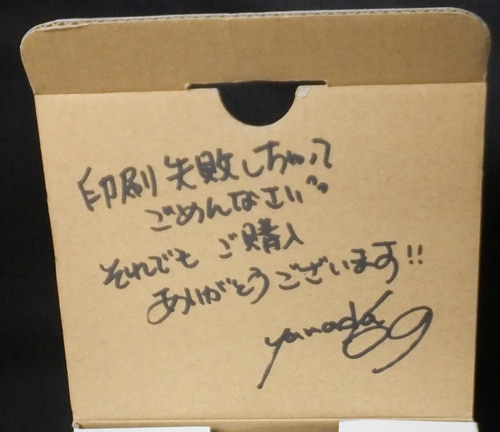 印刷失敗しちゃって
ごめんなさい
それでも ご購入
ありがとうございます!!
yamada69